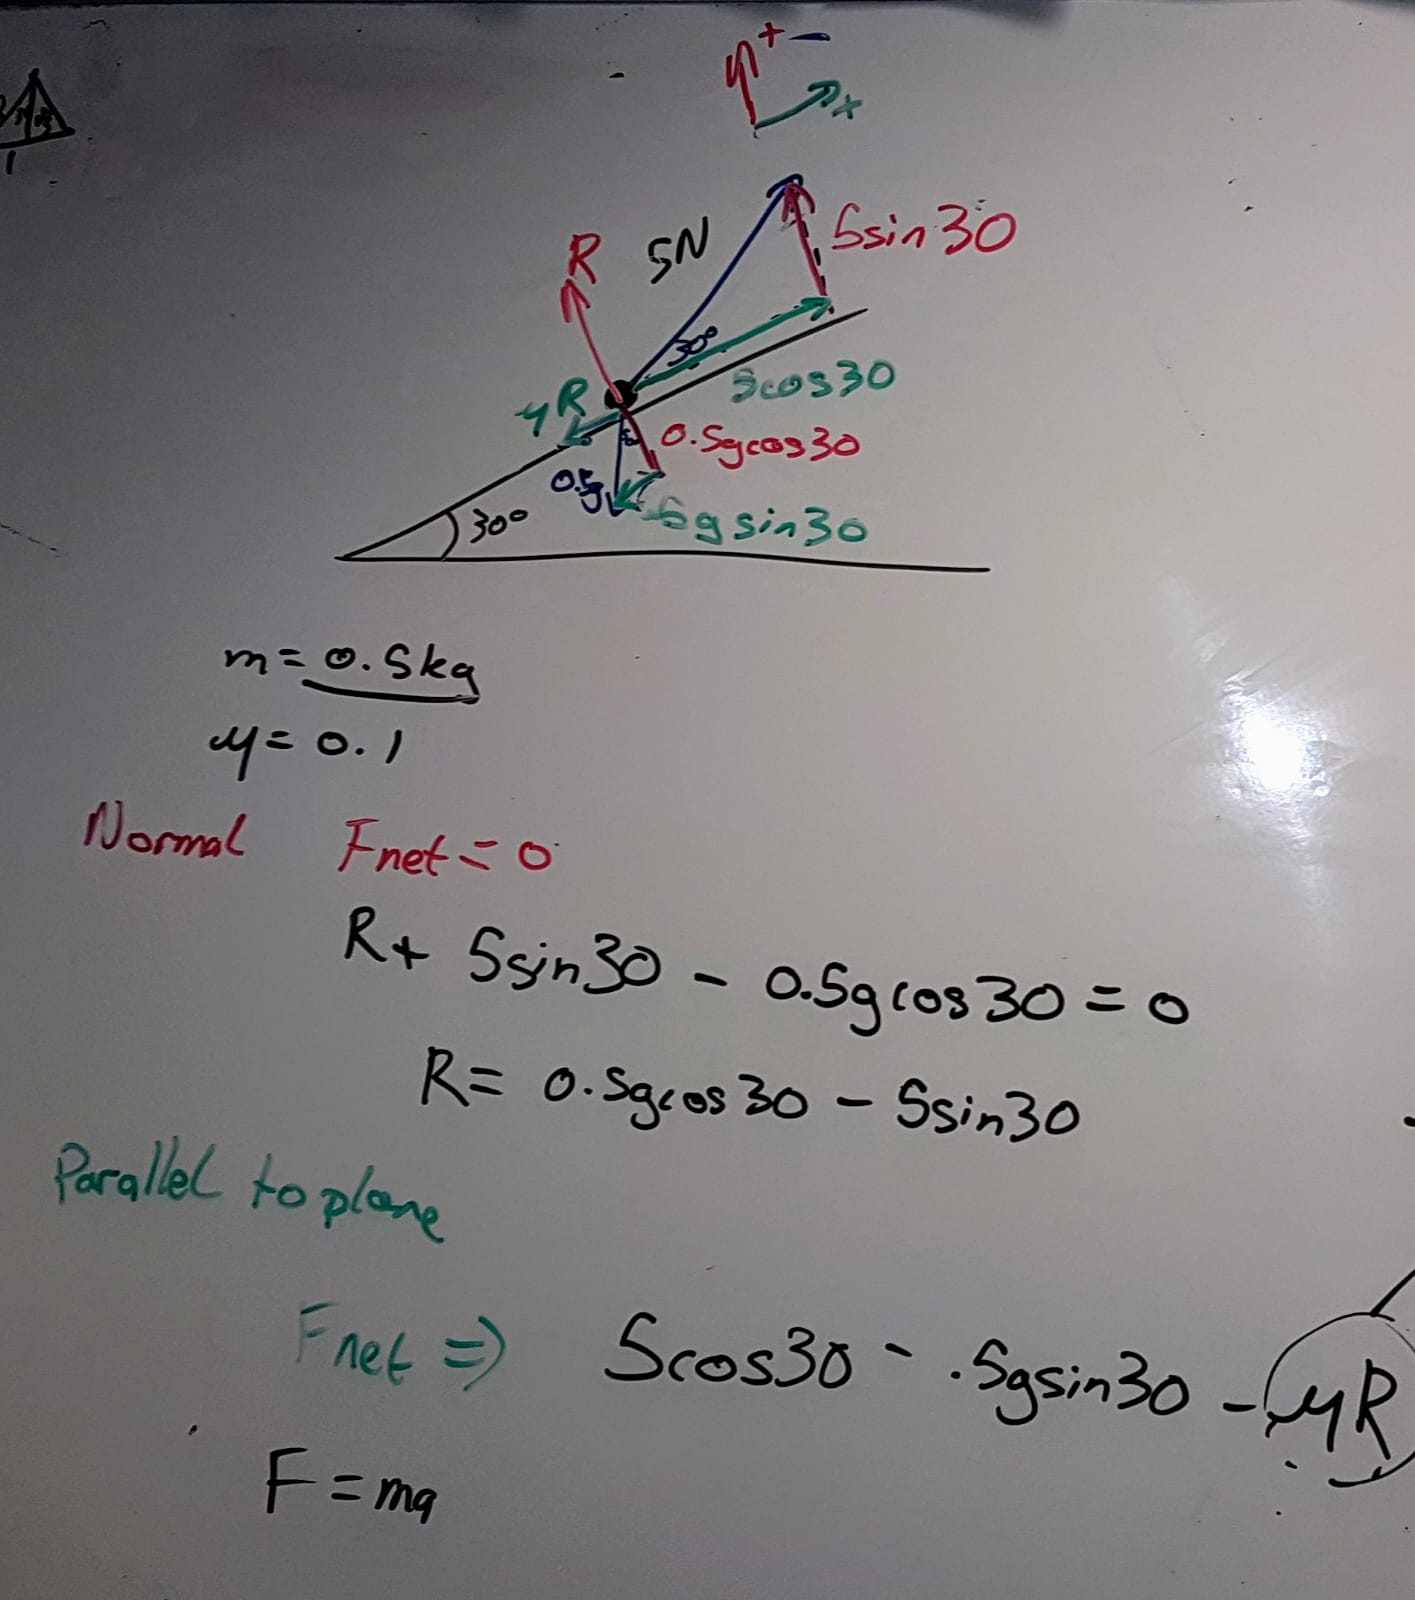 + -
x
5N
5sin30
R
30°
5cos30
μR
0.5gcos30
0.5g
.5g sin30
30°
m = 0.5kg
μ = 0.1
Normal Fnet = 0
R + 5sin30 - 0.5gcos30 = 0
R = 0.5gcos30 - 5sin30
Parallel to plane
Fnet => 5cos30 - .5gsin30 - μR
F = ma